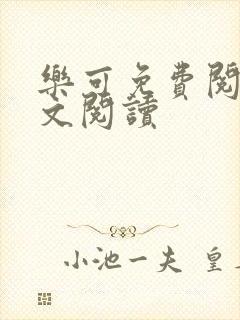 樂可免費閱
文閱讀
小池一夫 皇